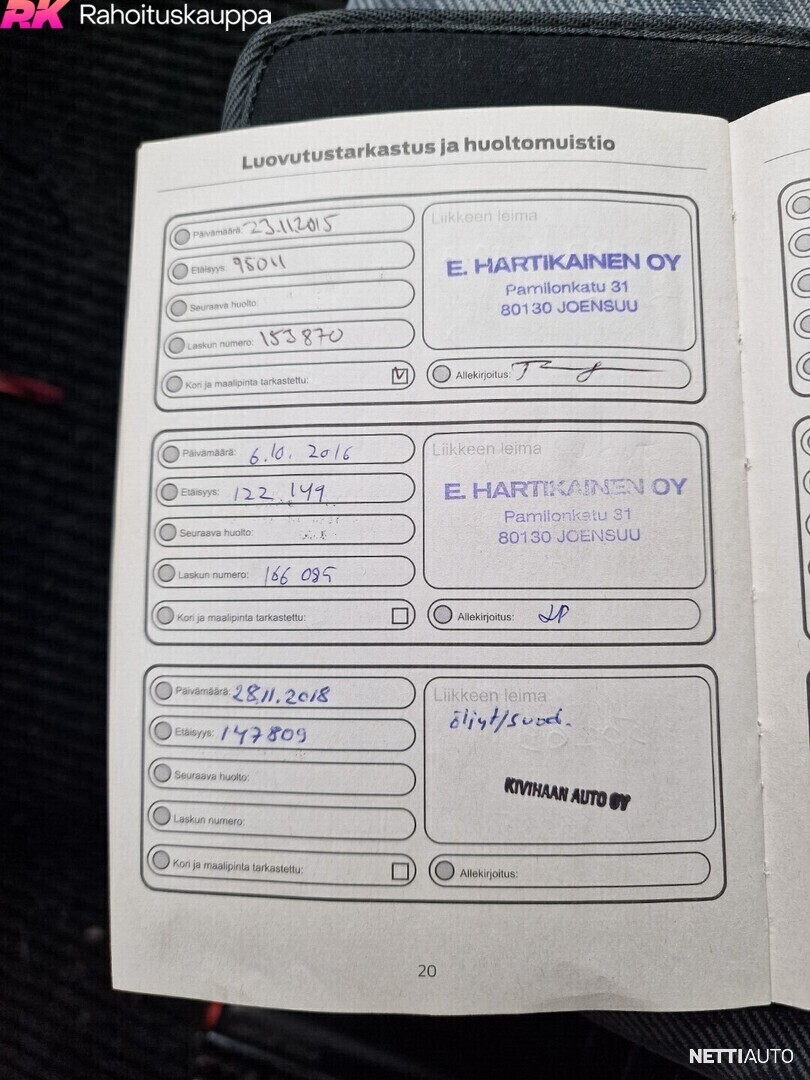 RK Rahoituskauppa
Luovutustarkastus ja huoltomuistio
Päivämäärä: 23.11.2015
Etäisyys: 95011
Seuraava huolto:
Laskun numero: 153870
Kori ja maalipinta tarkastettu:
Liikkeen leima
E. HARTIKAINEN OY
Pamilonkatu 31
80130 JOENSUU
Allekirjoitus:
Päivämäärä: 6.10. 2016
Etäisyys: 122 149
Seuraava huolto:
Laskun numero: 166 085
Kori ja maalipinta tarkastettu:
Liikkeen leima
E. HARTIKAINEN OY
Pamilonkatu 31
80130 JOENSUU
Allekirjoitus:
Päivämäärä: 28.11.2018
Etäisyys: 147809
Seuraava huolto:
Laskun numero:
Kori ja maalipinta tarkastettu:
Liikkeen leima
öljyt/suod.
KIVIHAAN AUTO OY
Allekirjoitus:
20
NETTIAUTO